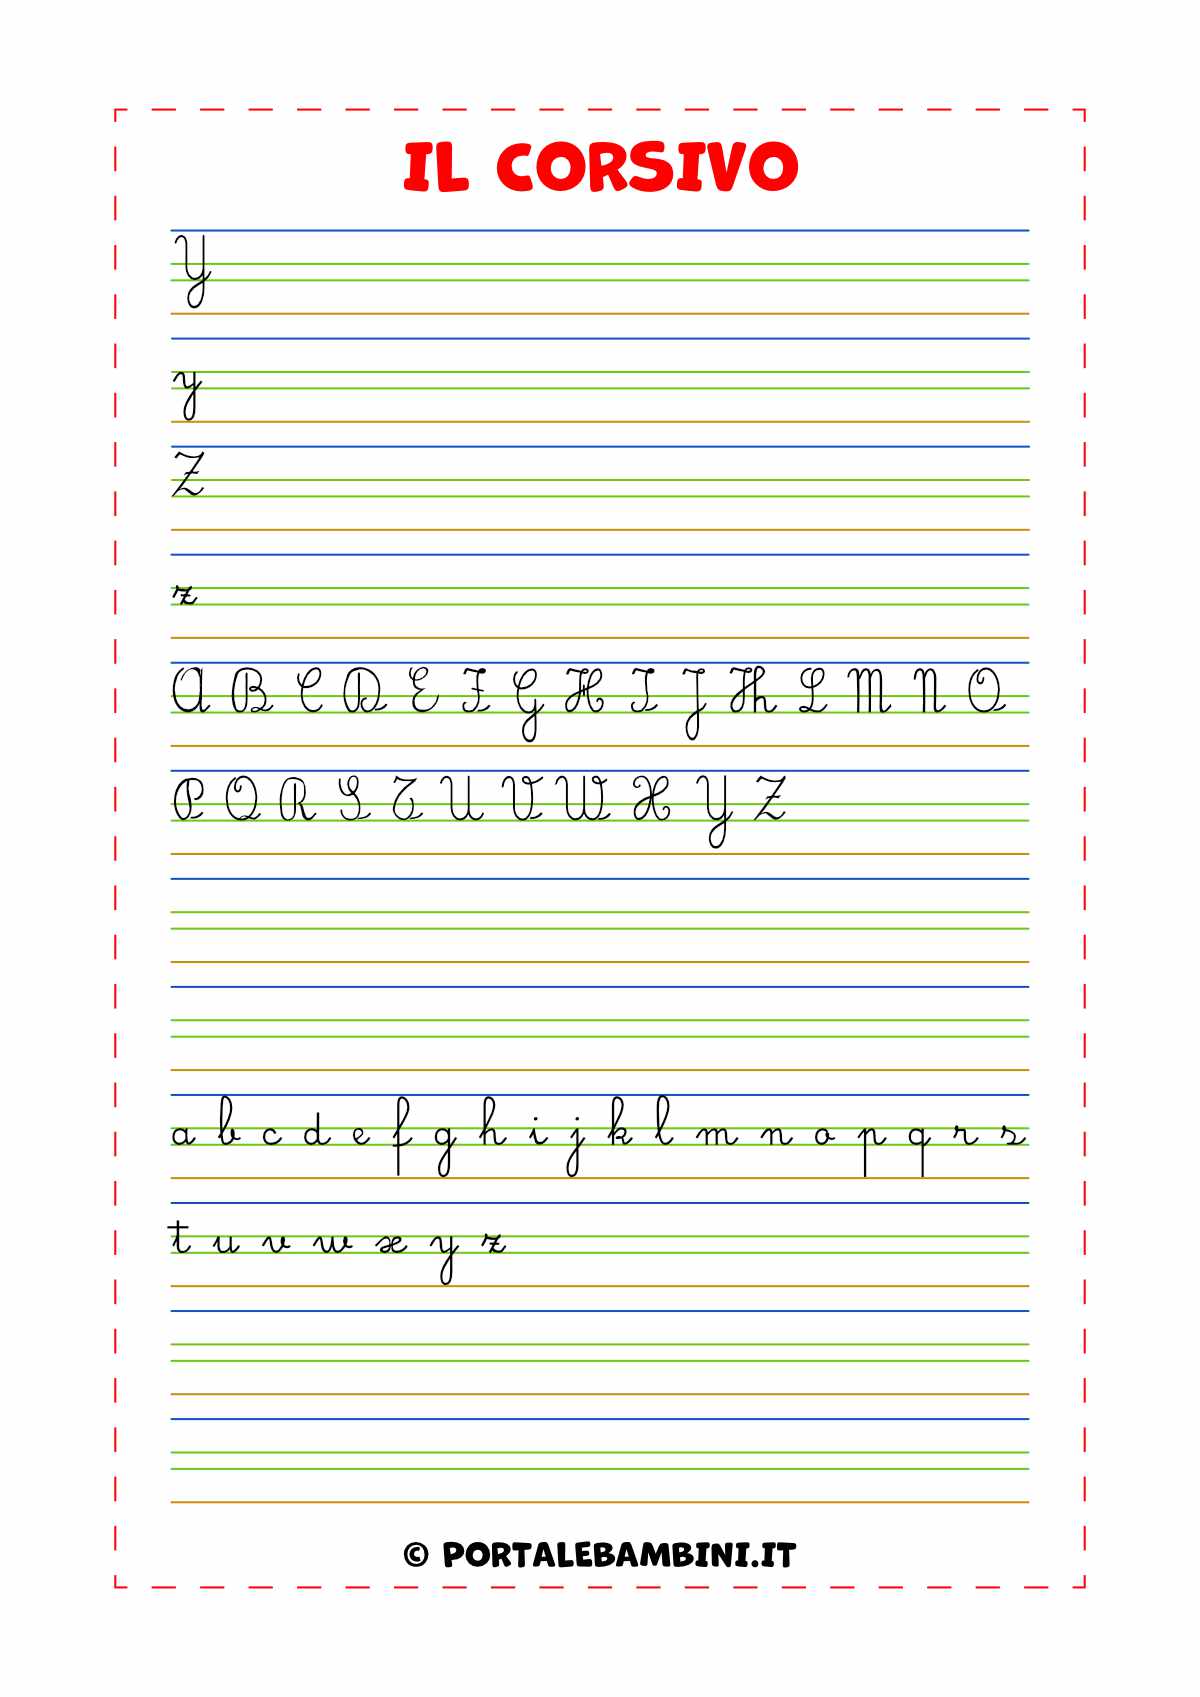 IL CORSIVO
Y
y
Z
z
A B C D E F G H I J K L M N O
P Q R S T U V W X Y Z
a b c d e f g h i j k l m n o p q r s
t u v w x y z
© PORTALEBAMBINI.IT